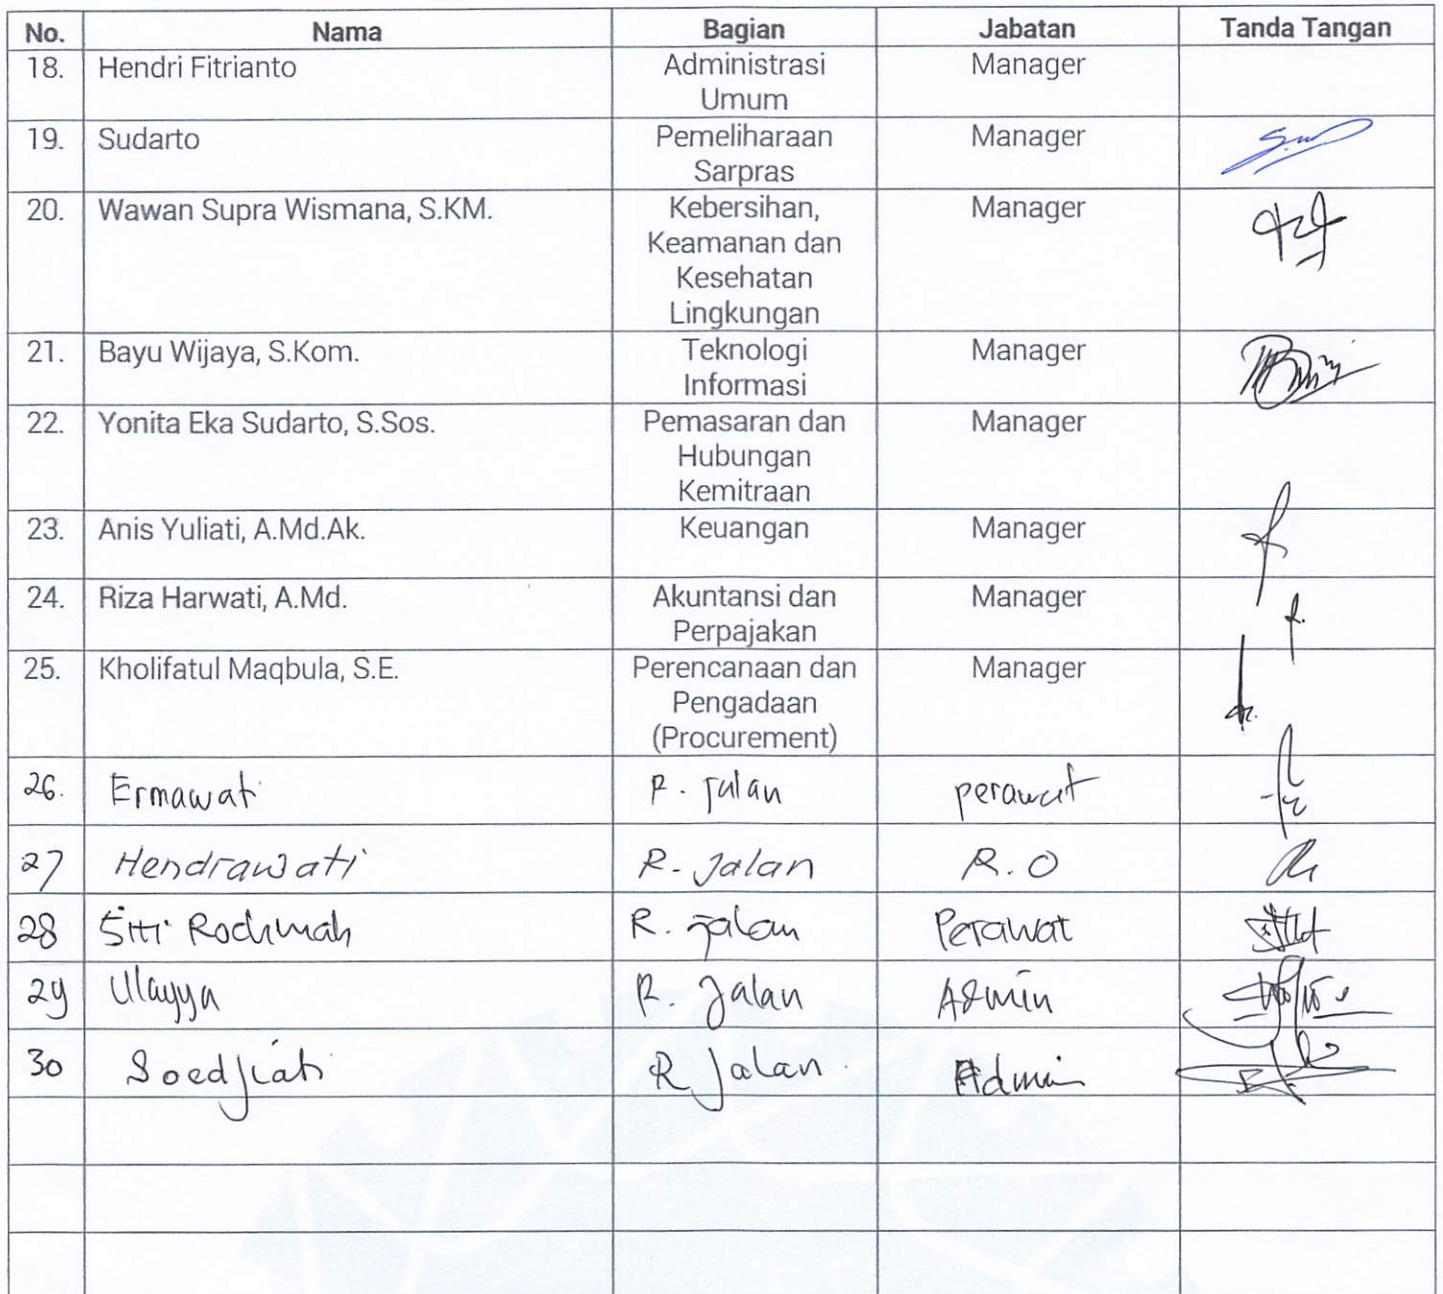 No. Nama Bagian Jabatan Tanda Tangan
18. Hendri Fitrianto Administrasi Manager
Umum
19. Sudarto Pemeliharaan Manager
Sarpras
20. Wawan Supra Wismana, S.KM. Kebersihan, Manager
Keamanan dan
Kesehatan
Lingkungan
21. Bayu Wijaya, S.Kom. Teknologi Manager
Informasi
22. Yonita Eka Sudarto, S.Sos. Pemasaran dan Manager
Hubungan
Kemitraan
23. Anis Yuliati, A.Md.Ak. Keuangan Manager
24. Riza Harwati, A.Md. Akuntansi dan Manager
Perpajakan
25. Kholifatul Maqbula, S.E. Perencanaan dan Manager
Pengadaan
(Procurement)
26. Ermawati R. jalan perawat
27 Hendrawati R. Jalan R.O
28 Siti Rochmah R. jalan Perawat
29 Ulayya R. Jalan Admin
30 Soedjiati R Jalan. Admin